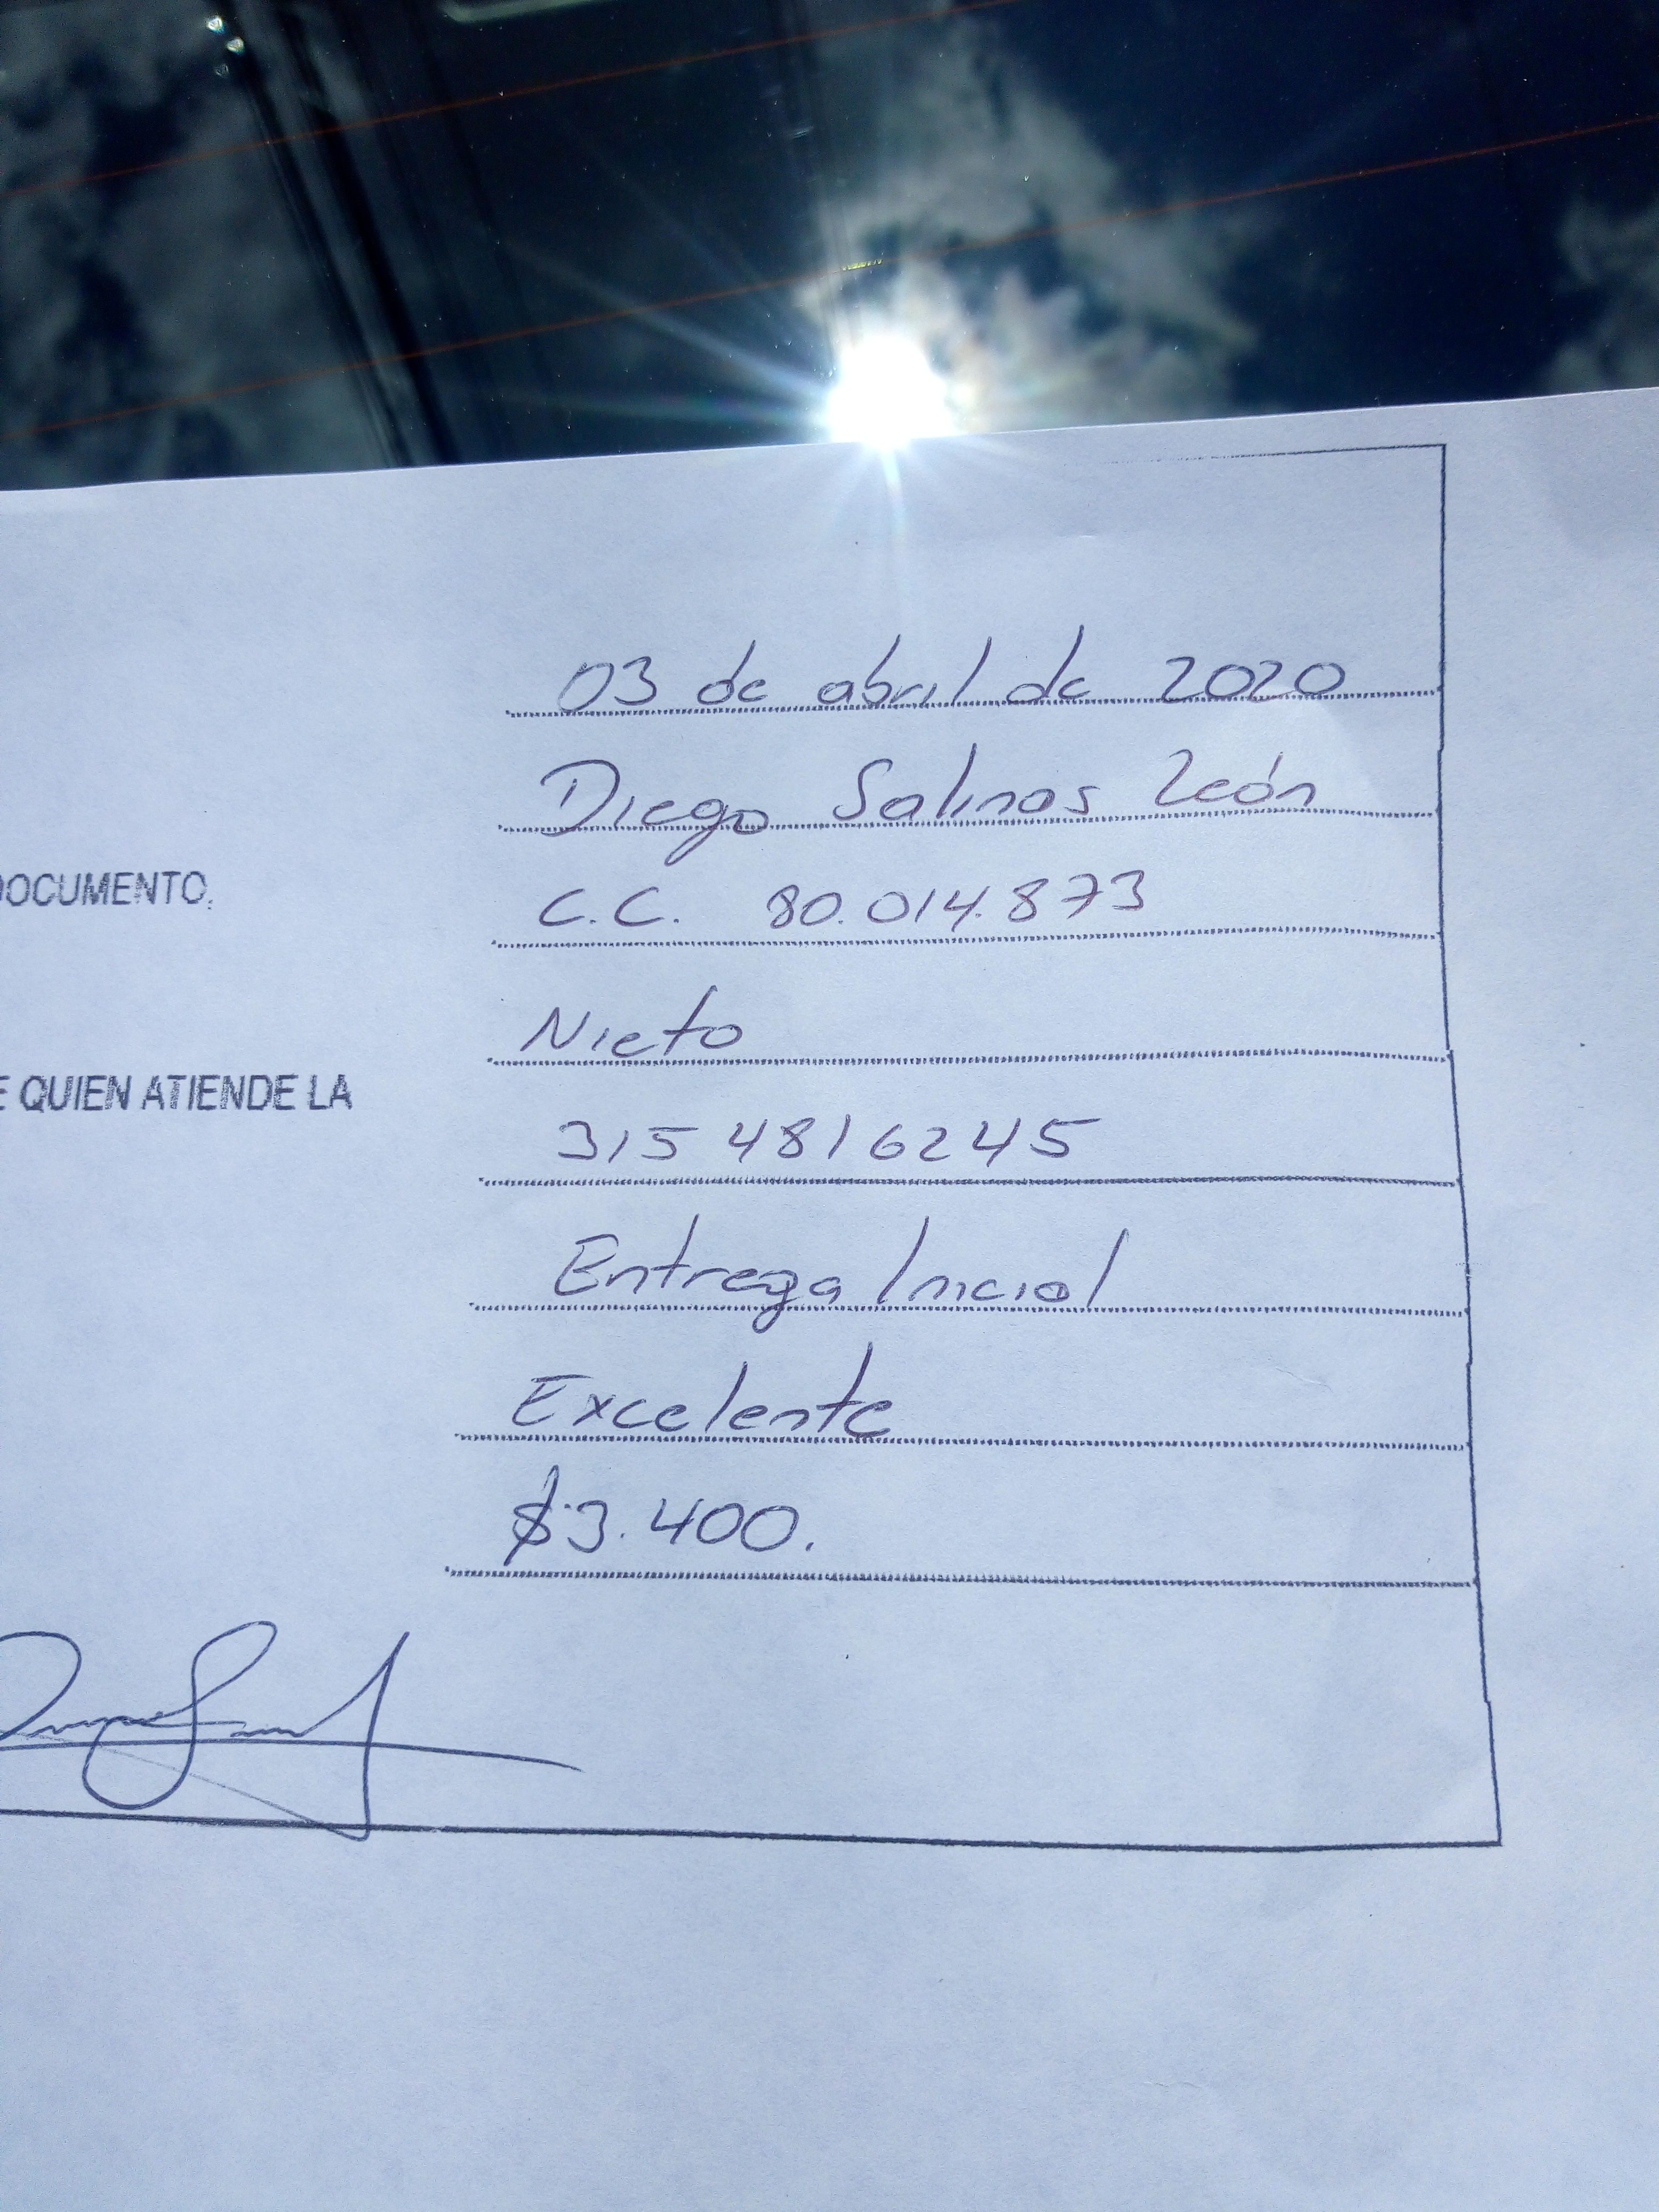 03 de abril de 2020
Diego Salinas León
DOCUMENTO.
C.C. 80.014.873
Nieto
E QUIEN ATIENDE LA
315 4816245
Entrega Inicial
Excelente
$3.400.